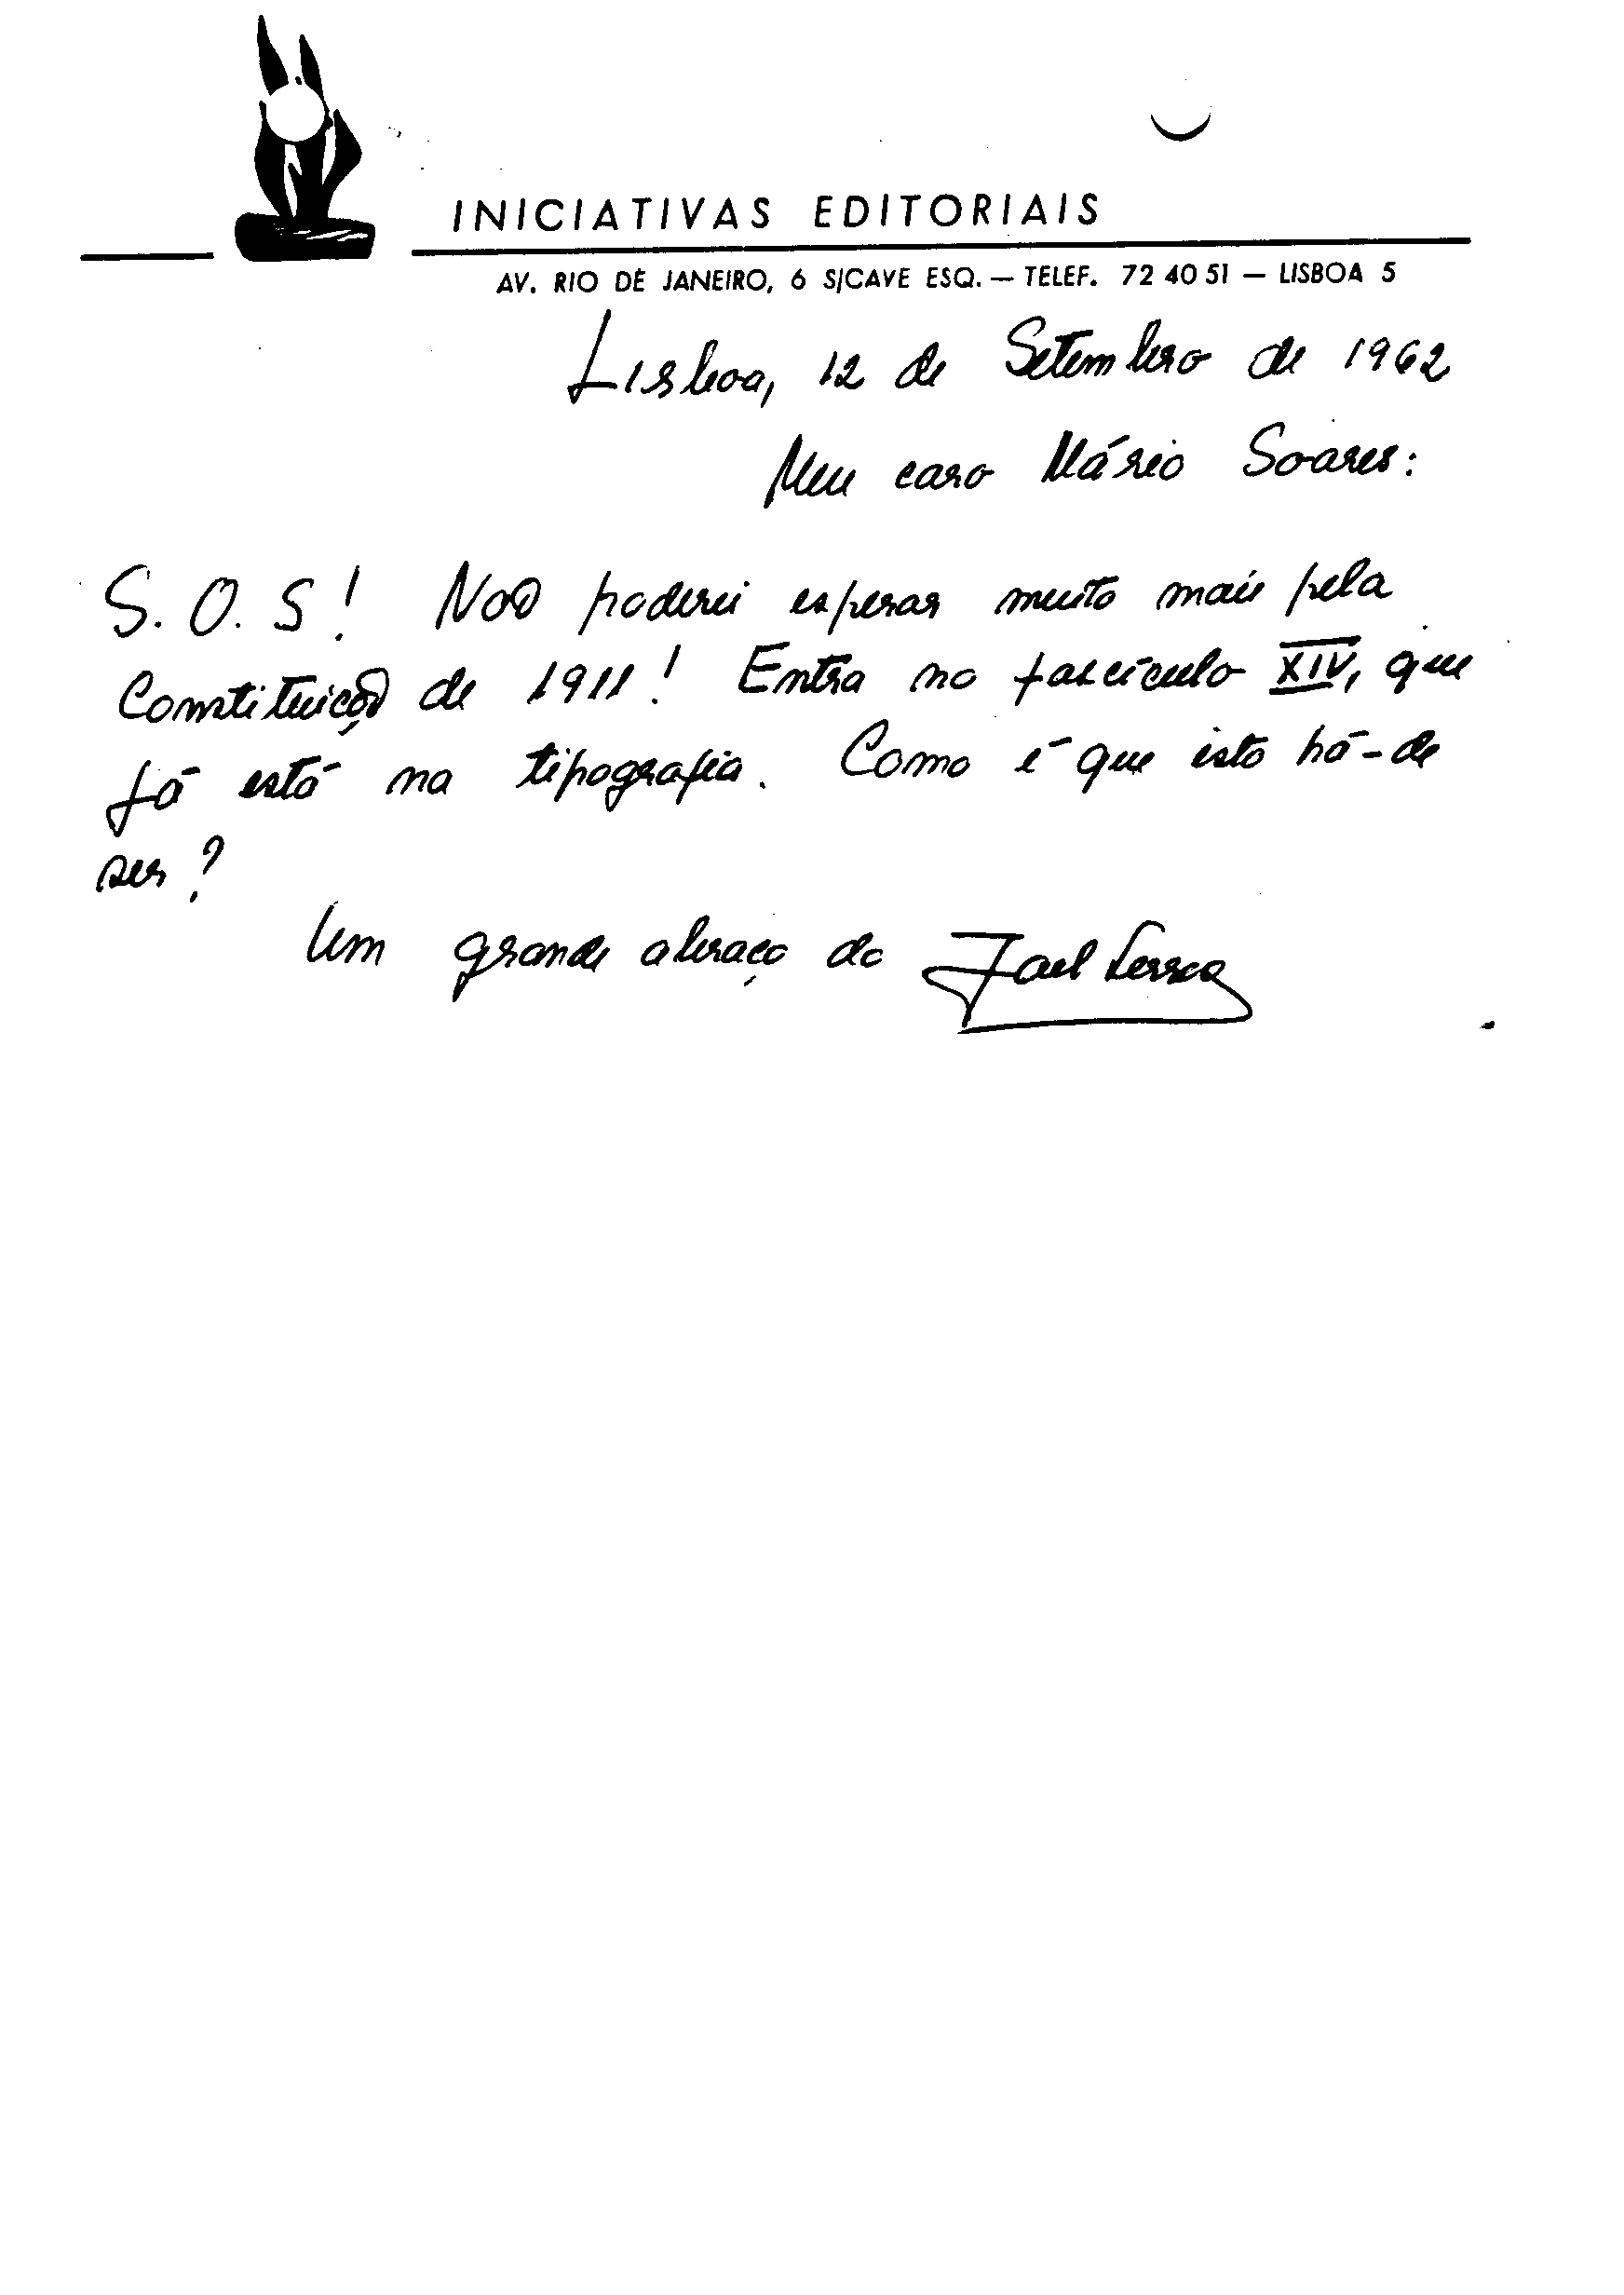 INICIATIVAS EDITORIAIS
AV. RIO DE JANEIRO, 6 S/CAVE ESQ. — TELEF. 72 40 51 — LISBOA 5
Lisboa, 12 de Setembro de 1962
Meu caro Mário Soares:
S. O. S! Não poderei esperar muito mais pela
Constituição de 1911! Entra no fascículo XIV, que
já está na tipografia. Como é que isto há-de
ser?
Um grande abraço do Joel Serrão